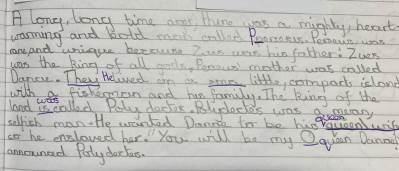 A long, long time ago, there was a mighty, heart-
warming and bold man called Perseus. Perseus was
one and unique because Zues was his father. Zues
was the king of all gods, Perseus' mother was called
Danae. They He lived on a small little, compact island
with a fisherman and his family. The king of the
land is was called Polydectes. Polydectes was a mean,
selfish man. He wanted Danae to be his queen wife
so he enslaved her. "You will be my Queen Danae"
announced Polydectes.